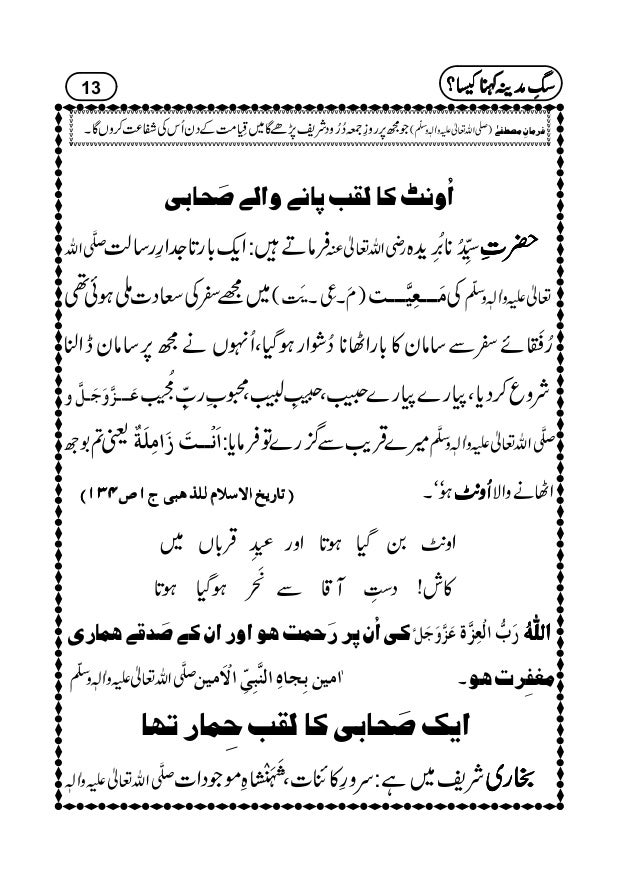 سگِ مدینہ کہنا کیسا؟
13
فرمانِ مصطفےٰ (صلی اللہ تعالیٰ علیہ والہٖ وسلّم) جو مجھ پر روزِ جمعہ دُرُود شریف پڑھے گا میں قِیامت کے دن اُس کی شفاعت کروں گا۔
اُونٹ کا لقب پانے والے صَحابی
حضرتِ سیِّدُ نا بُرِیدہ رضی اللہ تعالیٰ عنہ فرماتے ہیں: ایک بار تاجدارِ رسالت صلَّی اللہ
تعالیٰ علیہ والہٖ وسلَّم کی مَعِیَّت (مَ۔عِی۔یَت) میں مجھے سفر کی سعادت ملی ہوئی تھی
رُفَقائے سفر سے سامان کا بار اٹھانا دُشوار ہوگیا، اُنہوں نے مجھ پر سامان ڈالنا
شروع کر دیا، پیارے پیارے حبیب، حبیبِ لبیب، محبوبِ ربِّ مُجیب عَزَّوَجَلَّ و
صلَّی اللہ تعالیٰ علیہ والہٖ وسلَّم میرے قریب سے گزرے تو فرمایا: اَنْتَ زَامِلَةٌ یعنی تم بوجھ
اٹھانے والا اُونٹ ہو‘‘۔ (تاریخ الاسلام للذھبی ج ۱ ص ۱۳۴)
اونٹ بن گیا ہوتا اور عیدِ قرباں میں
کاش! دستِ آقا سے نَحَر ہوگیا ہوتا
اللہُ رَبُّ الْعِزَّة عَزَّوَجَلَّ کی اُن پر رَحمت ہو اور ان کے صَدقے ہماری
مغفِرت ہو۔ اٰمین بِجاہِ النَّبِیِّ الْاَمین صلَّی اللہ تعالیٰ علیہ والہٖ وسلَّم
ایک صَحابی کا لقب حِمار تھا
بخاری شریف میں ہے: سرورِ کائنات، شَہَنْشاہِ موجودات صلَّی اللہ تعالیٰ علیہ والہٖ